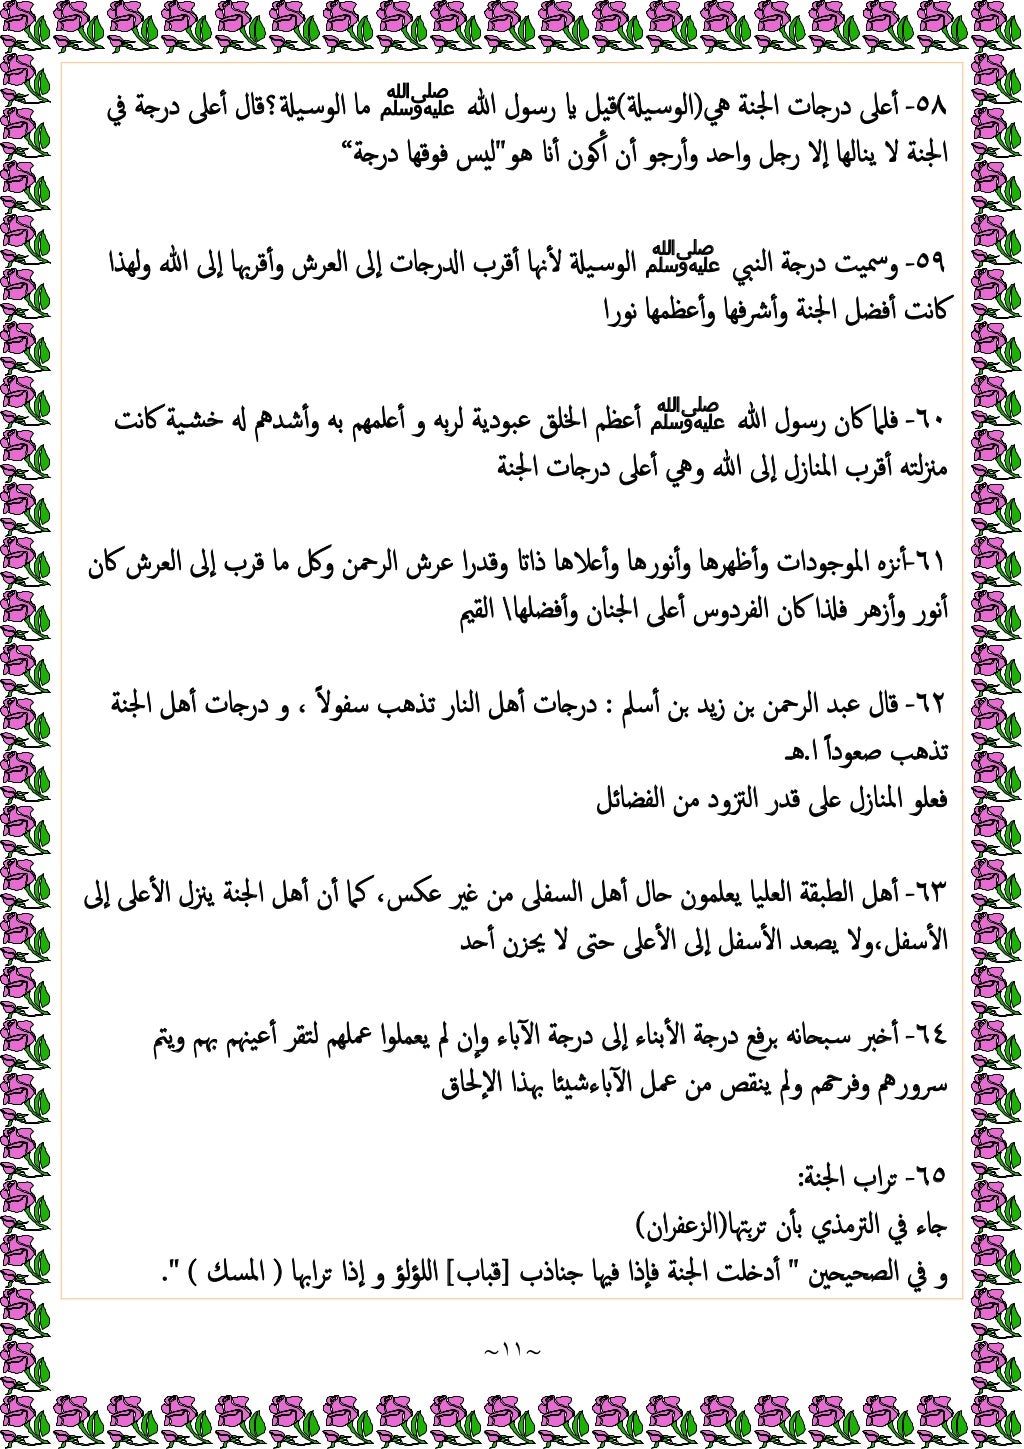 ٥٨- أعلى درجات الجنة هي(الوسيلة)قيل يا رسول الله ﷺ ما الوسيلة؟قال أعلى درجة في
الجنة لا ينالها إلا رجل واحد وأرجو أن أكون أنا هو"ليس فوقها درجة“
٥٩- وسميت درجة النبي ﷺ الوسيلة لأنها أقرب الدرجات إلى العرش وأقربها إلى الله ولهذا
كانت أفضل الجنة وأشرفها وأعظمها نورا
٦٠- فلما كان رسول الله ﷺ أعظم الخلق عبودية لربه و أعلمهم به وأشدهم له خشية كانت
منزلته أقرب المنازل إلى الله وهي أعلى درجات الجنة
٦١-أنزه الموجودات وأظهرها وأنورها وأعلاها ذاتا وقدرا عرش الرحمن وكل ما قرب إلى العرش كان
أنور وأزهر فلذا كان الفردوس أعلى الجنان وأفضلها\ القيم
٦٢- قال عبد الرحمن بن زيد بن أسلم : درجات أهل النار تذهب سفولاً ، و درجات أهل الجنة
تذهب صعوداً ا.هـ
فعلو المنازل على قدر التزود من الفضائل
٦٣- أهل الطبقة العليا يعلمون حال أهل السفلى من غير عكس، كما أن أهل الجنة ينزل الأعلى إلى
الأسفل،ولا يصعد الأسفل إلى الأعلى حتى لا يحزن أحد
٦٤- أخبر سبحانه برفع درجة الأبناء إلى درجة الآباء وإن لم يعملوا عملهم لتقر أعينهم بهم ويتم
سرورهم وفرحهم ولم ينقص من عمل الآباءشيئا بهذا الإلحاق
٦٥- تراب الجنة:
جاء في الترمذي بأن تربتها(الزعفران)
و في الصحيحين " أدخلت الجنة فإذا فيها جناذب [قباب] اللؤلؤ و إذا ترابها ( المسك ) ".
~١١~